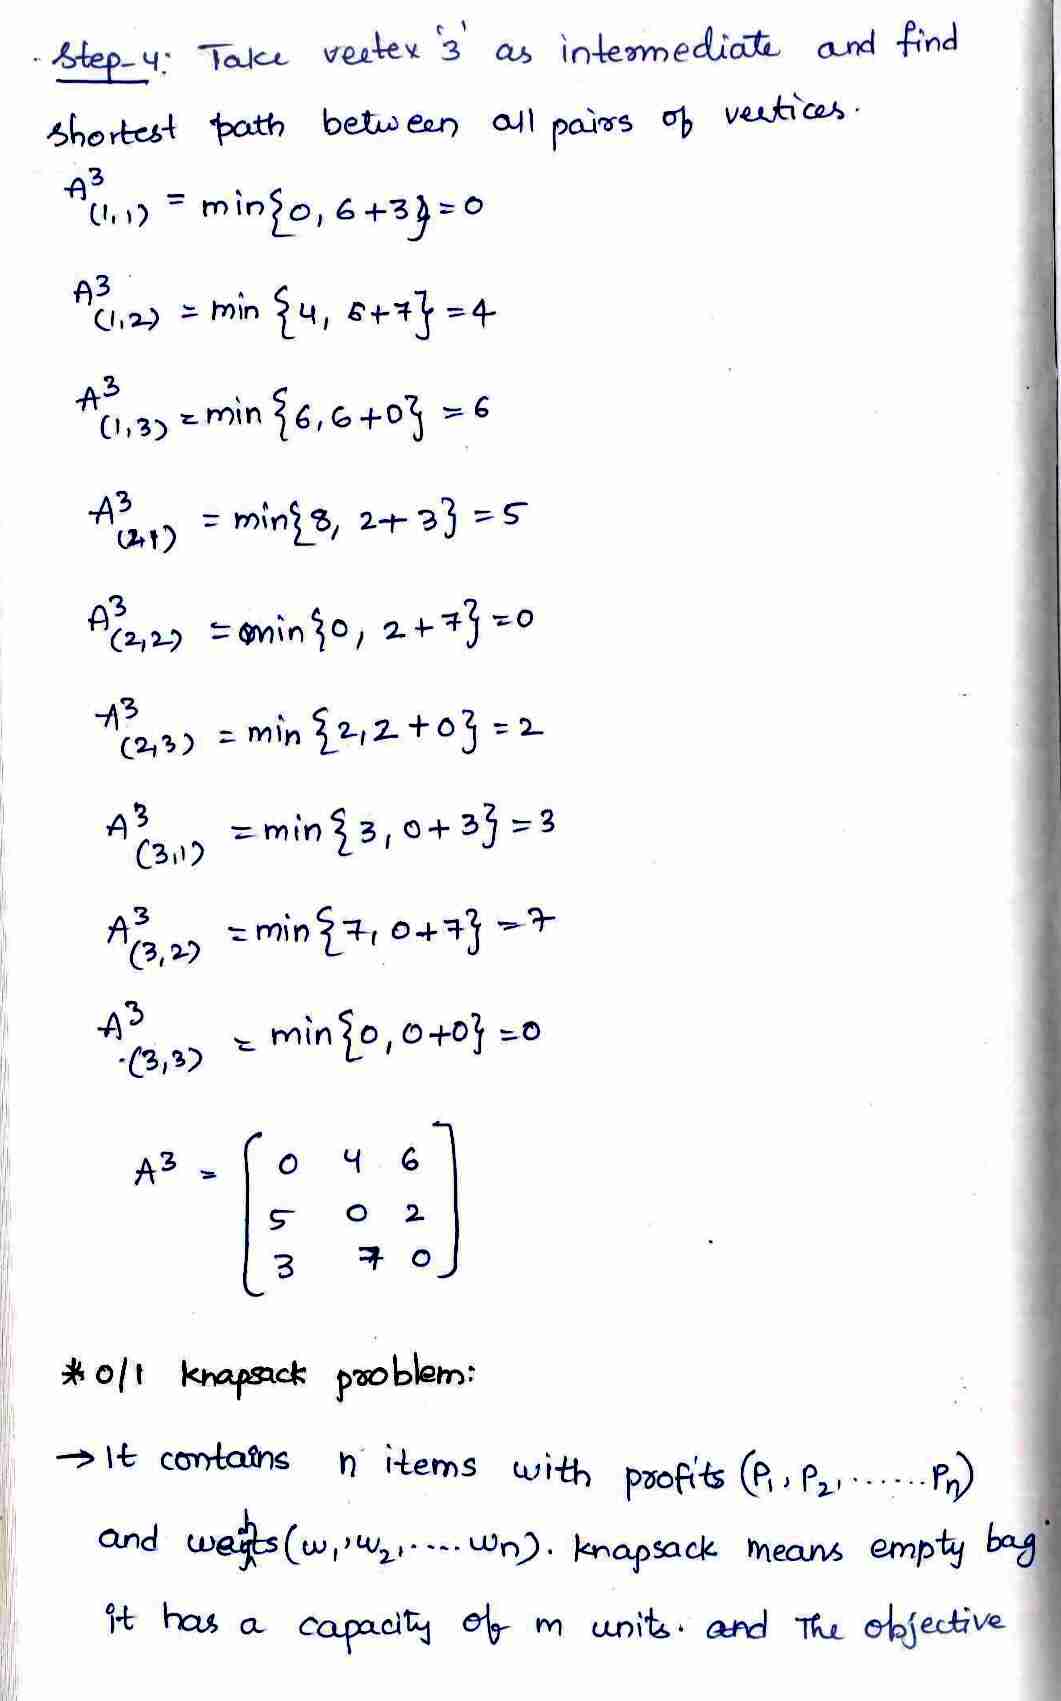 Step-4: Take vertex '3' as intermediate and find
shortest path between all pairs of vertices.
A³(1,1) = min{0, 6+3} = 0
A³(1,2) = min {4, 6+7} = 4
A³(1,3) = min {6, 6+0} = 6
A³(2,1) = min{8, 2+3} = 5
A³(2,2) = min{0, 2+7} = 0
A³(2,3) = min {2, 2+0} = 2
A³(3,1) = min{3, 0+3} = 3
A³(3,2) = min{7, 0+7} = 7
A³(3,3) = min{0, 0+0} = 0
A³ = [0 4 6
5 0 2
3 7 0]
* 0/1 knapsack problem:
→ It contains n items with profits (P₁, P₂, ...... Pn)
and weights (w₁, w₂, ..... wn). knapsack means empty bag
it has a capacity of m units. and The objective